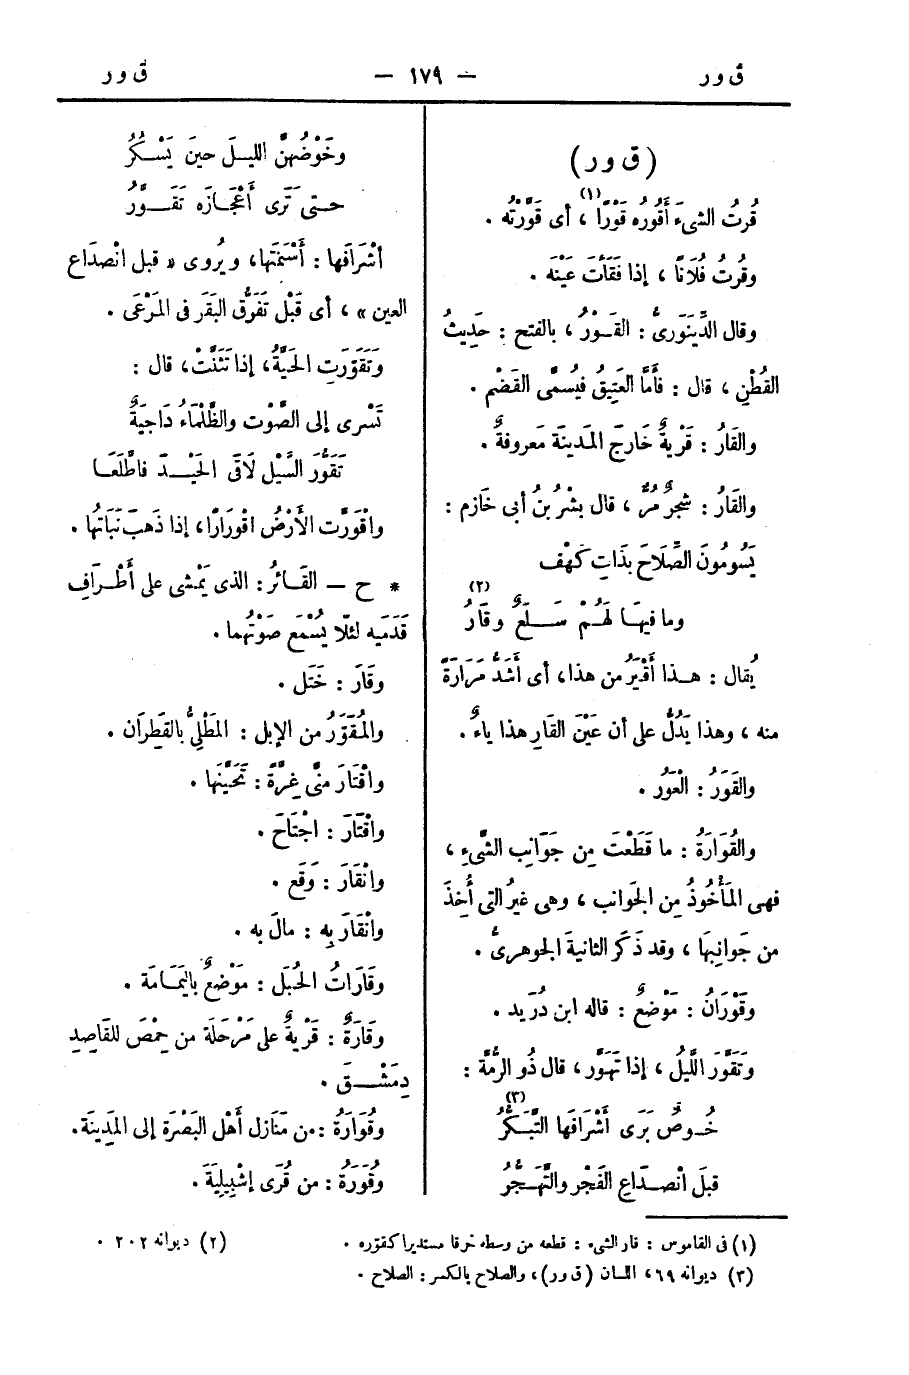 ق ور
— ١٧٩ —
ق ور
(ق ور)
قُرتُ الشىءَ أَقُورُه قَوْرًا (١) ، أى قَوَّرْتُه .
وقُرتُ فُلَانًا ، إذا فَقَأْتَ عَيْنَه .
وقال الدِّينَوَرىُّ : القَــوْرُ ، بالفتح : حَدِيثُ
القُطْنِ ، قال : فأَمَّا العَتِيقُ فيُسمَّى القَضْم .
والقَارُ : قَرْيةٌ خَارِجَ المَدينَة مَعروفةٌ .
والقَارُ : شجرٌ مُرٌّ ، قال بشْرُ بنُ أبى خَازم :
يَسُومُونَ الصَّلَاحَ بذَاتِ كَهْف
وما فيهَــا لَهُــمْ سَـــلَعٌ وقَارُ (٢)
يُقال : هــذا أَقْيَرُ من هذا، أى أَشدُّ مَرَارَةً
منه ، وهذا يَدُلُّ على أن عَيْنَ القَارِ هذا ياءٌ .
والقَوَرُ : العَوَرُ .
والقُوَارَةُ : ما قَطَعْتَ مِن جَوَانِب الشَّىءِ ،
فهى المَأْخُوذُ مِن الجَوانب ، وهى غيرُ التى أُخِذَ
من جَوانِبهَا ، وقد ذَكَر الثانيةَ الجوهرىُّ .
وقَوْرَانُ : مَوْضعٌ : قاله ابن دُرَيد .
وتَقَوَّرَ اللَّيلُ ، إذا تَهَوَّر ، قال ذُو الرُّمَّة :
خُــوصٌ بَرَى أَشْرَافَها التَّبَــكُّرُ (٣)
قبلَ انْصــدَاعِ الفَجْر والتَّهَــجُّرُ
وخَوْضُهنَّ الليــلَ حينَ يَسْــكُرُ
حــتى تَرَى أَعْجَــازَه تَقَــوَّرُ
أشْرَافَها : أَسْنمَتَها، ويُروى « قبل انْصدَاع
العين » ، أى قَبْلَ تَفَرُّق البَقَر فى المَرْعَى .
وتَقَوَّرَتِ الحَيَّةُ، إذا تَثَنَّتْ، قال :
تَسْرى إلى الصَّوْت والظَّلْمَاءُ دَاجيَةٌ
تَقَوُّرَ السَّيْل لَاقَى الحَيْــدَ فاطَّلَعَــا
واقْوَرَّت الأَرْضُ اقْورَارًا، إذا ذَهبَ نَبَاتُها .
* ح — القَــائرُ : الذى يَمْشى على أَطْــرَافِ
قَدَمَيه لئلَّا يُسْمَع صَوْتُهما .
وقَارَ : خَتَل .
والمُقَوَّرُ من الإبل : المَطْلِىُّ بالقَطِرَان .
واقْتَارَ منِّى غِرَّةً : تَحَيَّنَها .
واقْتَارَ : اجْتَاحَ .
وانْقَارَ : وَقَع .
وانْقَارَ بِه : مالَ به .
وقَارَاتُ الحُبَل : مَوْضعٌ باليَمَامَة .
وقَارَةُ : قَرْيةٌ على مَرْحَلَة من حِمْصَ للقَاصِدِ
دِمَشْــقَ .
وقُوَارَةُ : من مَنَازل أَهْل البَصْرَة إلى المَدينَة .
وقُوَرَةُ : من قُرَى إشْبِيلِيَةَ .
(١) فى القاموس : قار الشىء : قطعه من وسطه خرقا مستديرا كقوره . (٢) ديوانه ٢٠٢ .
(٣) ديوانه ٦٩ ، اللسان (ق ور)، والصلاح بالكسر : الصلاح .